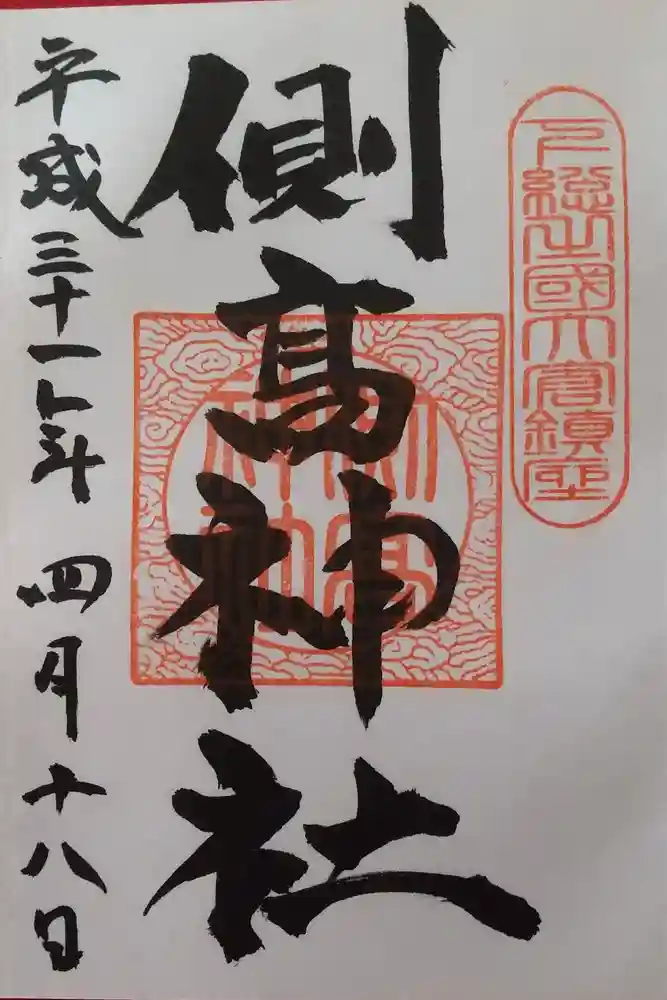 下総之國大倉鎮座
側高神社
側高
神社
平成三十一年
四月十八日